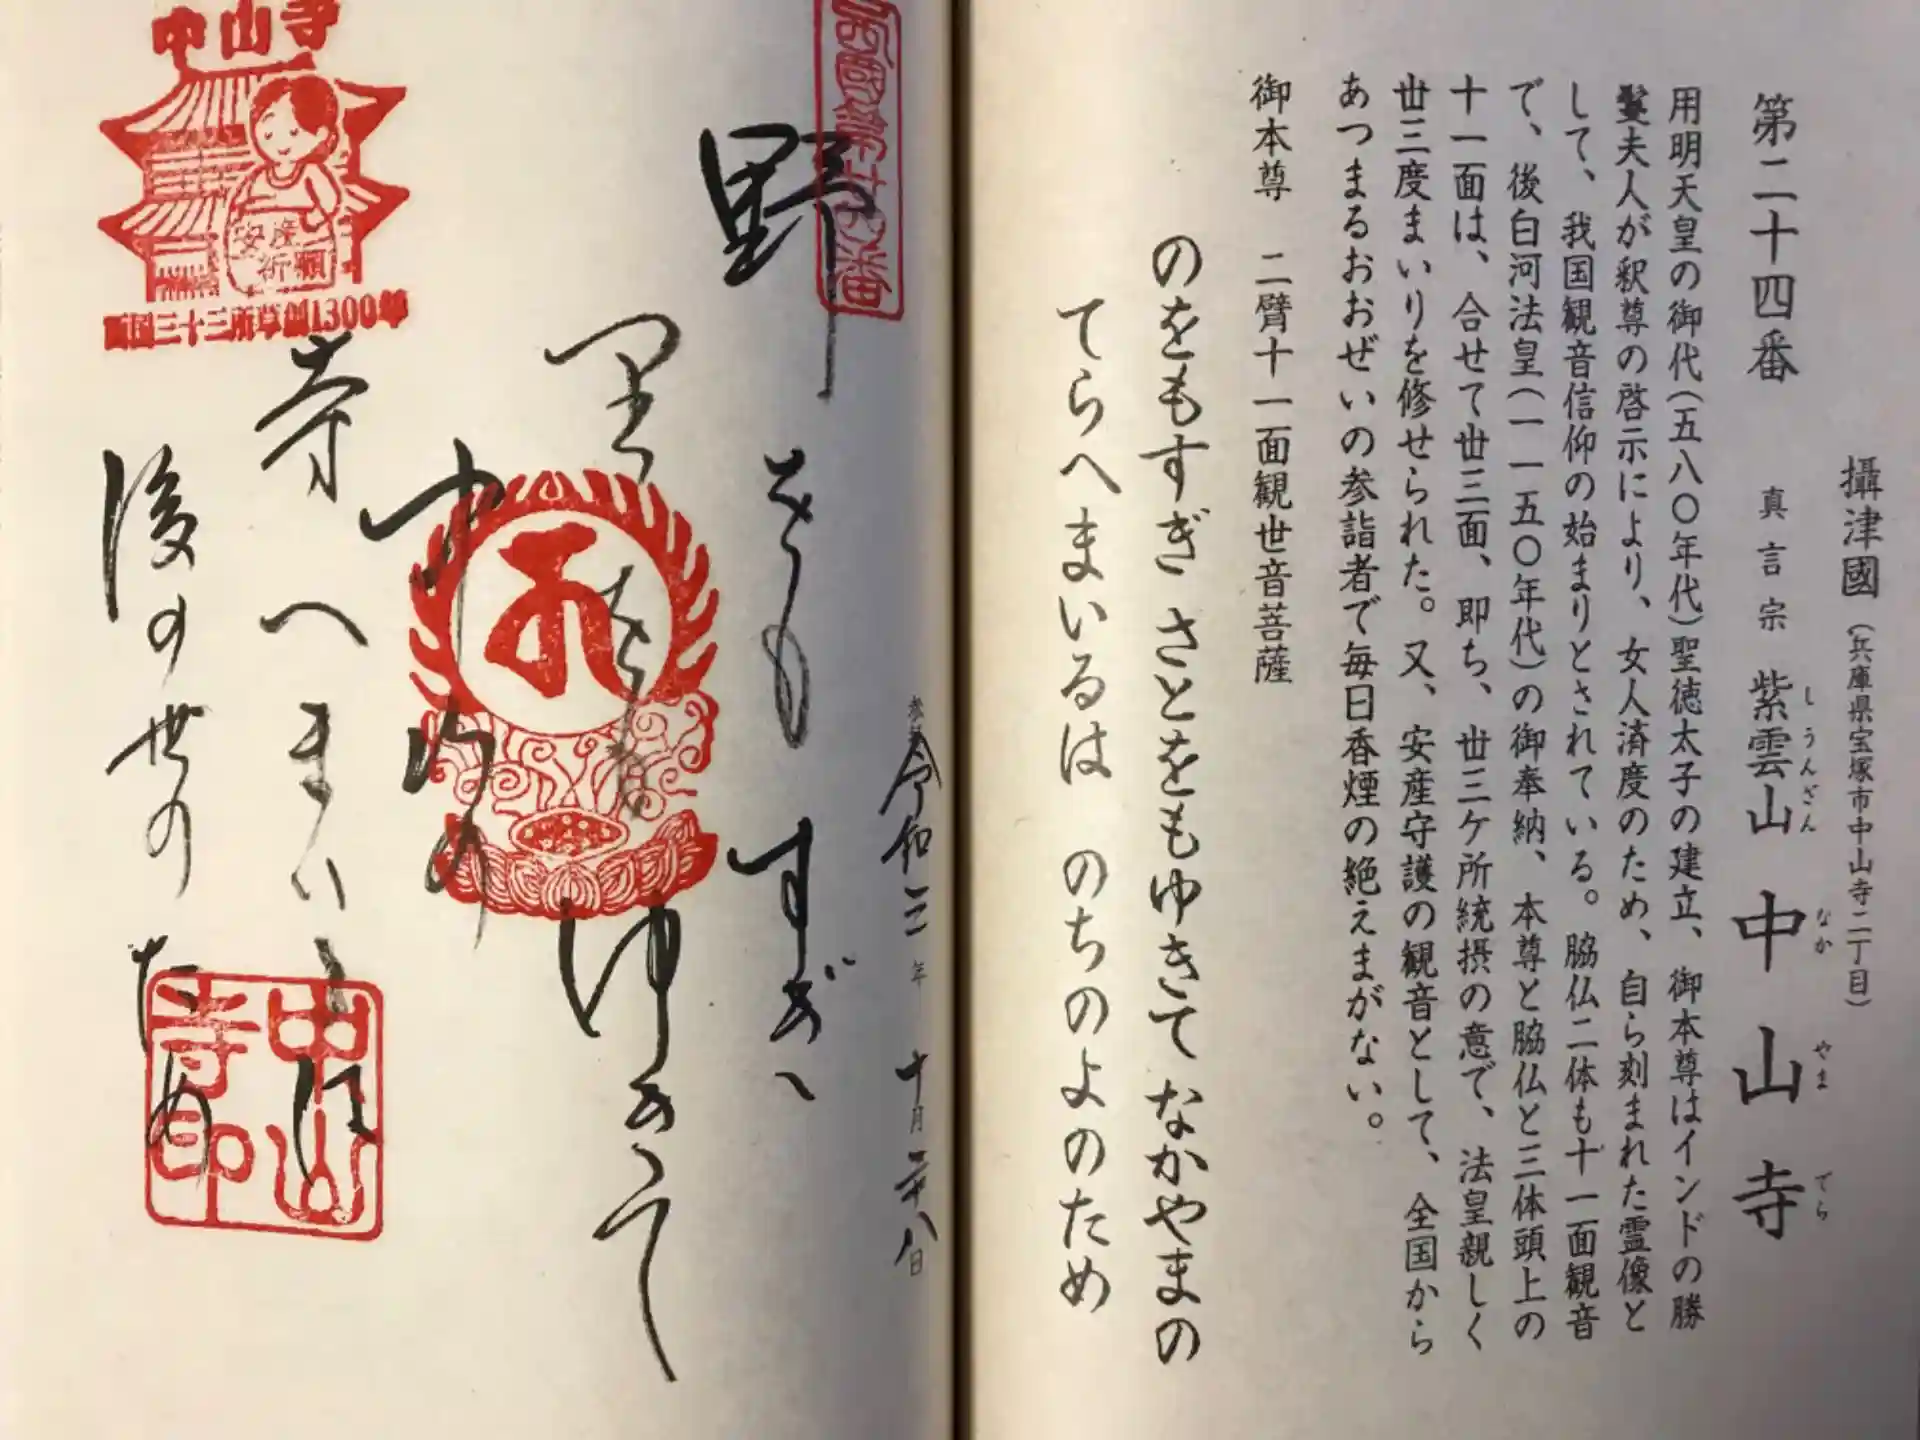 攝津國(兵庫県宝塚市中山寺二丁目)
第二十四番 真言宗 紫雲山 中山寺
しうんざん なか やま でら
用明天皇の御代(五八〇年代)聖徳太子の建立、御本尊はインドの勝
鬘夫人が釈尊の啓示により、女人済度のため、自ら刻まれた霊像と
して、我国観音信仰の始まりとされている。脇仏二体も十一面観音
で、後白河法皇(一一五〇年代)の御奉納、本尊と脇仏と三体頭上の
十一面は、合せて丗三面、即ち、丗三ケ所統摂の意で、法皇親しく
丗三度まいりを修せられた。又、安産守護の観音として、全国から
あつまるおおぜいの参詣者で毎日香煙の絶えまがない。
御本尊 二臂十一面観世音菩薩
のをもすぎ さとをもゆきて なかやまの
てらへまいるは のちのよのため
令和三年 十月二十八日
西國第廿四番
野をもすぎ
里をもゆきて
中山の
寺へまいるは
後の世のため
中山寺
安産
祈願
西国三十三所草創1300年
中山
寺印